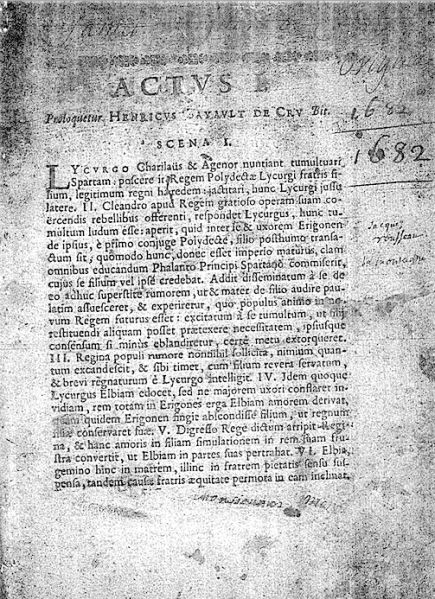 1682
ACTVS I.
Prologuetur HENRICUS DE CRU Bit.
1682
SCENA I.
LYCURGO Charilaüs & Agenor nuntiant tumultuari
Spartam: poscere it Regem Polydectæ Lycurgi fratris fi-
lium, legitimum regni hæredem: jactitari, hunc Lycurgi jussu
latere. II. Cleandro apud Regem gratioso operam suam co-
ërcendis rebellibus offerenti, respondet Lycurgus, hunc tu-
multum ludum esse: aperit, quid inter se & uxorem Erigonen
de ipsius, è primo conjuge Polydectê, filio posthumo transa-
ctum sit; quomodo hunc, donec esset imperio maturus, clam
omnibus educandum Phalanto Principi Spartano commiserit,
cujus se filium vel ipse credebat. Addit disseminatum à se de
eo adhuc superstite rumorem, ut & mater de filio audire pau-
latim assuesceret, & experiretur, quo populus animo in no-
vum Regem futurus esset: excitatum à se tumultum, ut filii
restituendi aliquam posset prætexere necessitatem, ipsiusque
consensum si minùs eblandiretur, certè metu extorqueret.
III. Regina populi rumore nonnihil sollicita, nimium quan-
tum excandescit, & sibi timet, cum filium revera servatum,
& brevi regnaturum è Lycurgo intelligit. IV. Idem quoque
Lycurgus Elbiam edocet, sed ne majorem uxori conflaret in-
vidiam, rem totam in Erigones erga Elbiam amorem derivat,
quidem Erigonen fingit abscondisse filium, ut regnum
filiæ conservaret suæ. V. Digresso Rege dictum arripit Regi-
na, & hanc amoris in filiam simulationem in rem suam fru-
stra convertit, ut Elbiam in partes suas pertrahat. VI. Elbia
gemino hinc in matrem, illinc in fratrem pietatis sensu su-
spensa, tandem causæ fratris æquitate permota in eam inclinat.